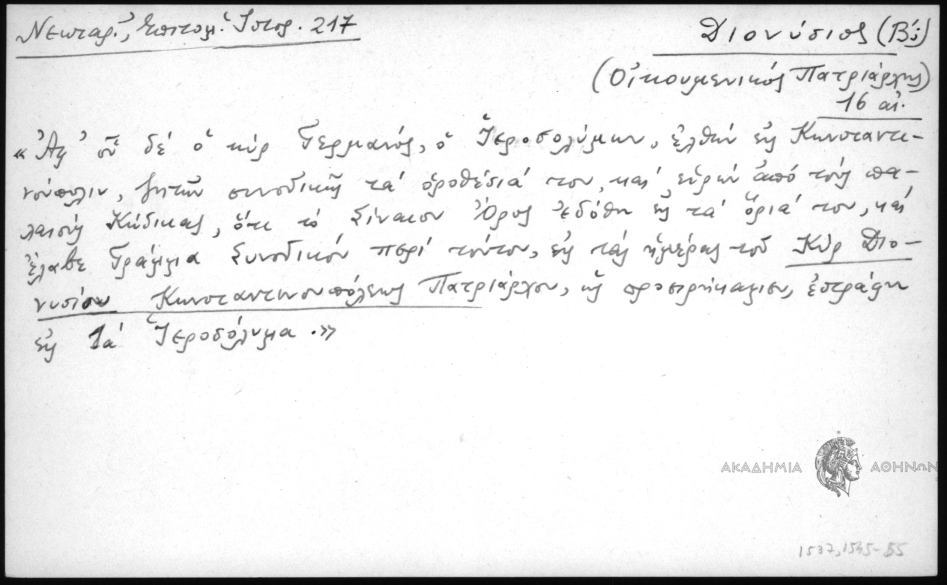 Νεκταρ., Ἐπιτομ. Ἱστορ. 217
Διονύσιος (Β΄.)
(Οἰκουμενικός Πατριάρχης)
16 αἰ.
«Ἀφ' οὗ δέ ὁ κύρ Γερμανός, ὁ Ἱεροσολύμων, ἐλθών εἰς Κωνσταντι-
νούπολιν, ζητῶν συνοδικῶς τά ὁροθέσιά του, καί εὑρών ἀπό τούς πα-
λαιούς Κώδικας, ὅτι τό Σίναιον Ὄρος ἐδόθη εἰς τά ὅριά του, καί
ἔλαβε Γράμμα Συνοδικόν περί τούτου, εἰς τάς ἡμέρας τοῦ Κύρ Διο-
νυσίου Κωνσταντινουπόλεως Πατριάρχου, ὡς προειρήκαμεν, ἐστράφη
εἰς τά Ἱεροσόλυμα.»
ΑΚΑΔΗΜΙΑ ΑΘΗΝΩΝ
1537, 1545-55